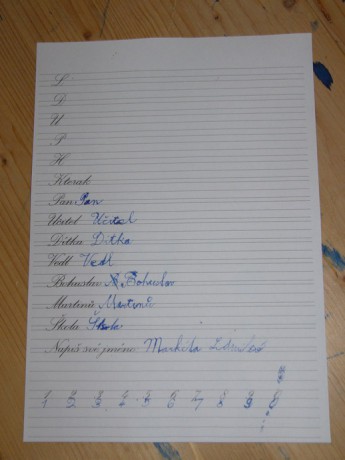 L
D
U
P
H
Kterak
Pan Pan
Učitel Učitel
Dítka Dítka
Vedl Vedl
Bohuslav Bohuslav
Martinů Martinů
Škola Škola
Napiš své jméno: Markéta
1 2 3 4 5 6 7 8 9